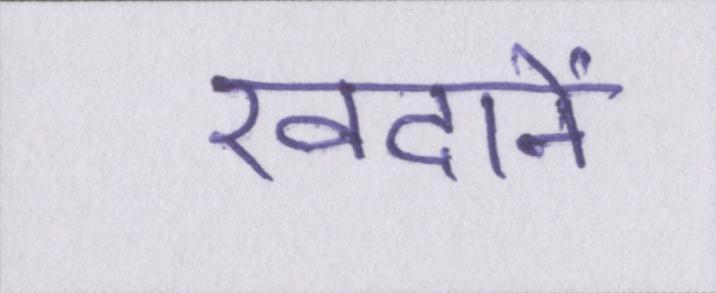 खदानें